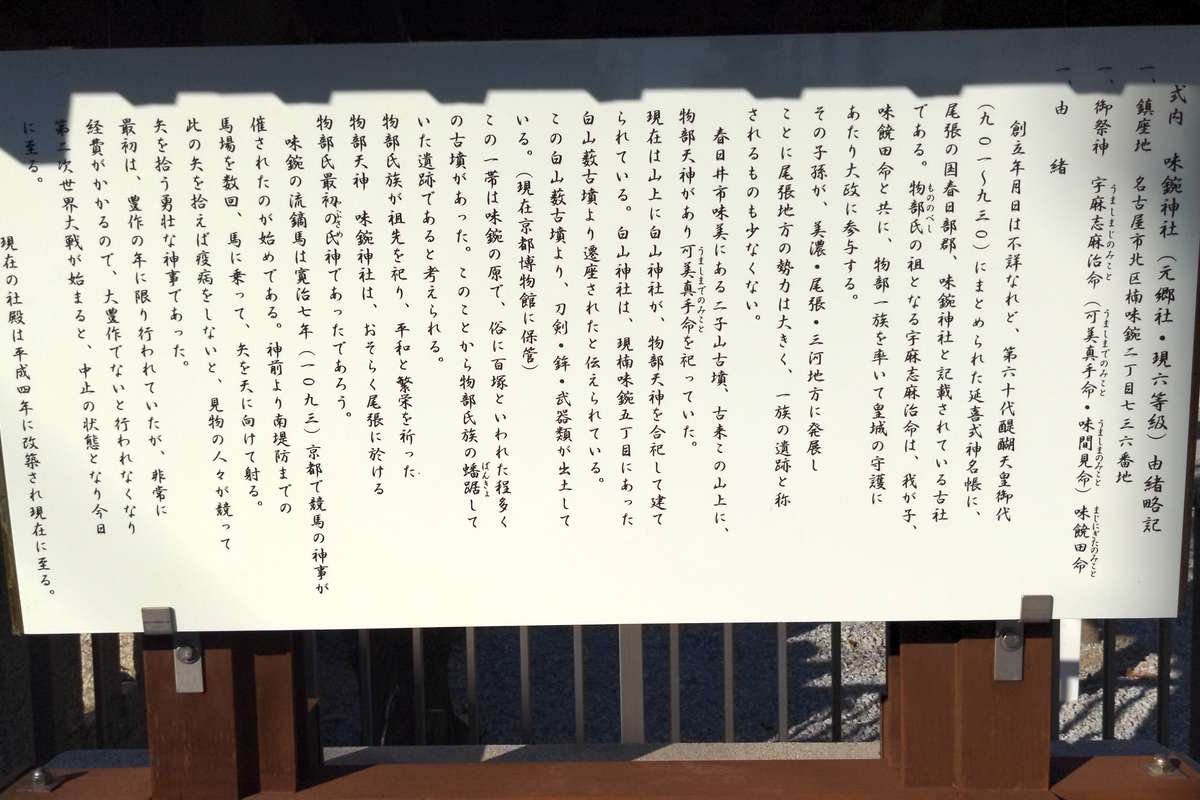 式内　味鋺神社　（元郷社・現六等級）由緒略記
一、鎮座地　名古屋市北区楠味鋺二丁目七三六番地
一、御祭神　宇麻志麻治命（うましまじのみこと）　（可美真手命（うましまでのみこと）・味間見命（うましまのみこと））　味饒田命（まじにぎたのみこと）
一、由　緒
創立年月日は不詳なれど、第六十代醍醐天皇御代
（九〇一〜九三〇）にまとめられた延喜式神名帳に、
尾張の国春日部郡、味鋺神社と記載されている古社
である。物部氏（もののべし）の祖となる宇麻志麻治命は、我が子、
味饒田命と共に、物部一族を率いて皇城の守護に
あたり大政に参与する。
その子孫が、美濃・尾張・三河地方に発展し
ことに尾張地方の勢力は大きく、一族の遺跡と称
されるものも少なくない。
春日井市味美にある二子山古墳、古来この山上に、
物部天神があり可美真手命（うましまでのみこと）を祀っていた。
現在は山上に白山神社が、物部天神を合祀して建て
られている。白山神社は、現楠味鋺五丁目にあった
白山薮古墳より遷座されたと伝えられている。
この白山薮古墳より、刀剣・鉾・武器類が出土して
いる。（現在京都博物館に保管）
この一帯は味鋺の原で、俗に百塚といわれた程多く
の古墳があった。このことから物部氏族の蟠踞（ばんきょ）して
いた遺跡であると考えられる。
物部氏族が祖先を祀り、平和と繁栄を祈った
物部天神　味鋺神社は、おそらく尾張に於ける
物部氏族最初の氏神であったであろう。
味鋺の流鏑馬（やぶさめ）は寛治七年（一〇九三）京都で競馬の神事が
催されたのが始めである。神前より南堤防までの
馬場を数回、馬に乗って、矢を天に向けて射る。
此の矢を拾えば疫病をしないと、見物の人々が競って
矢を拾う勇壮な神事であった。
最初は、豊作の年に限り行われていたが、非常に
経費がかかるので、大豊作でないと行われなくなり
第二次世界大戦が始まると、中止の状態となり今日
に至る。
現在の社殿は平成四年に改築され現在に至る。